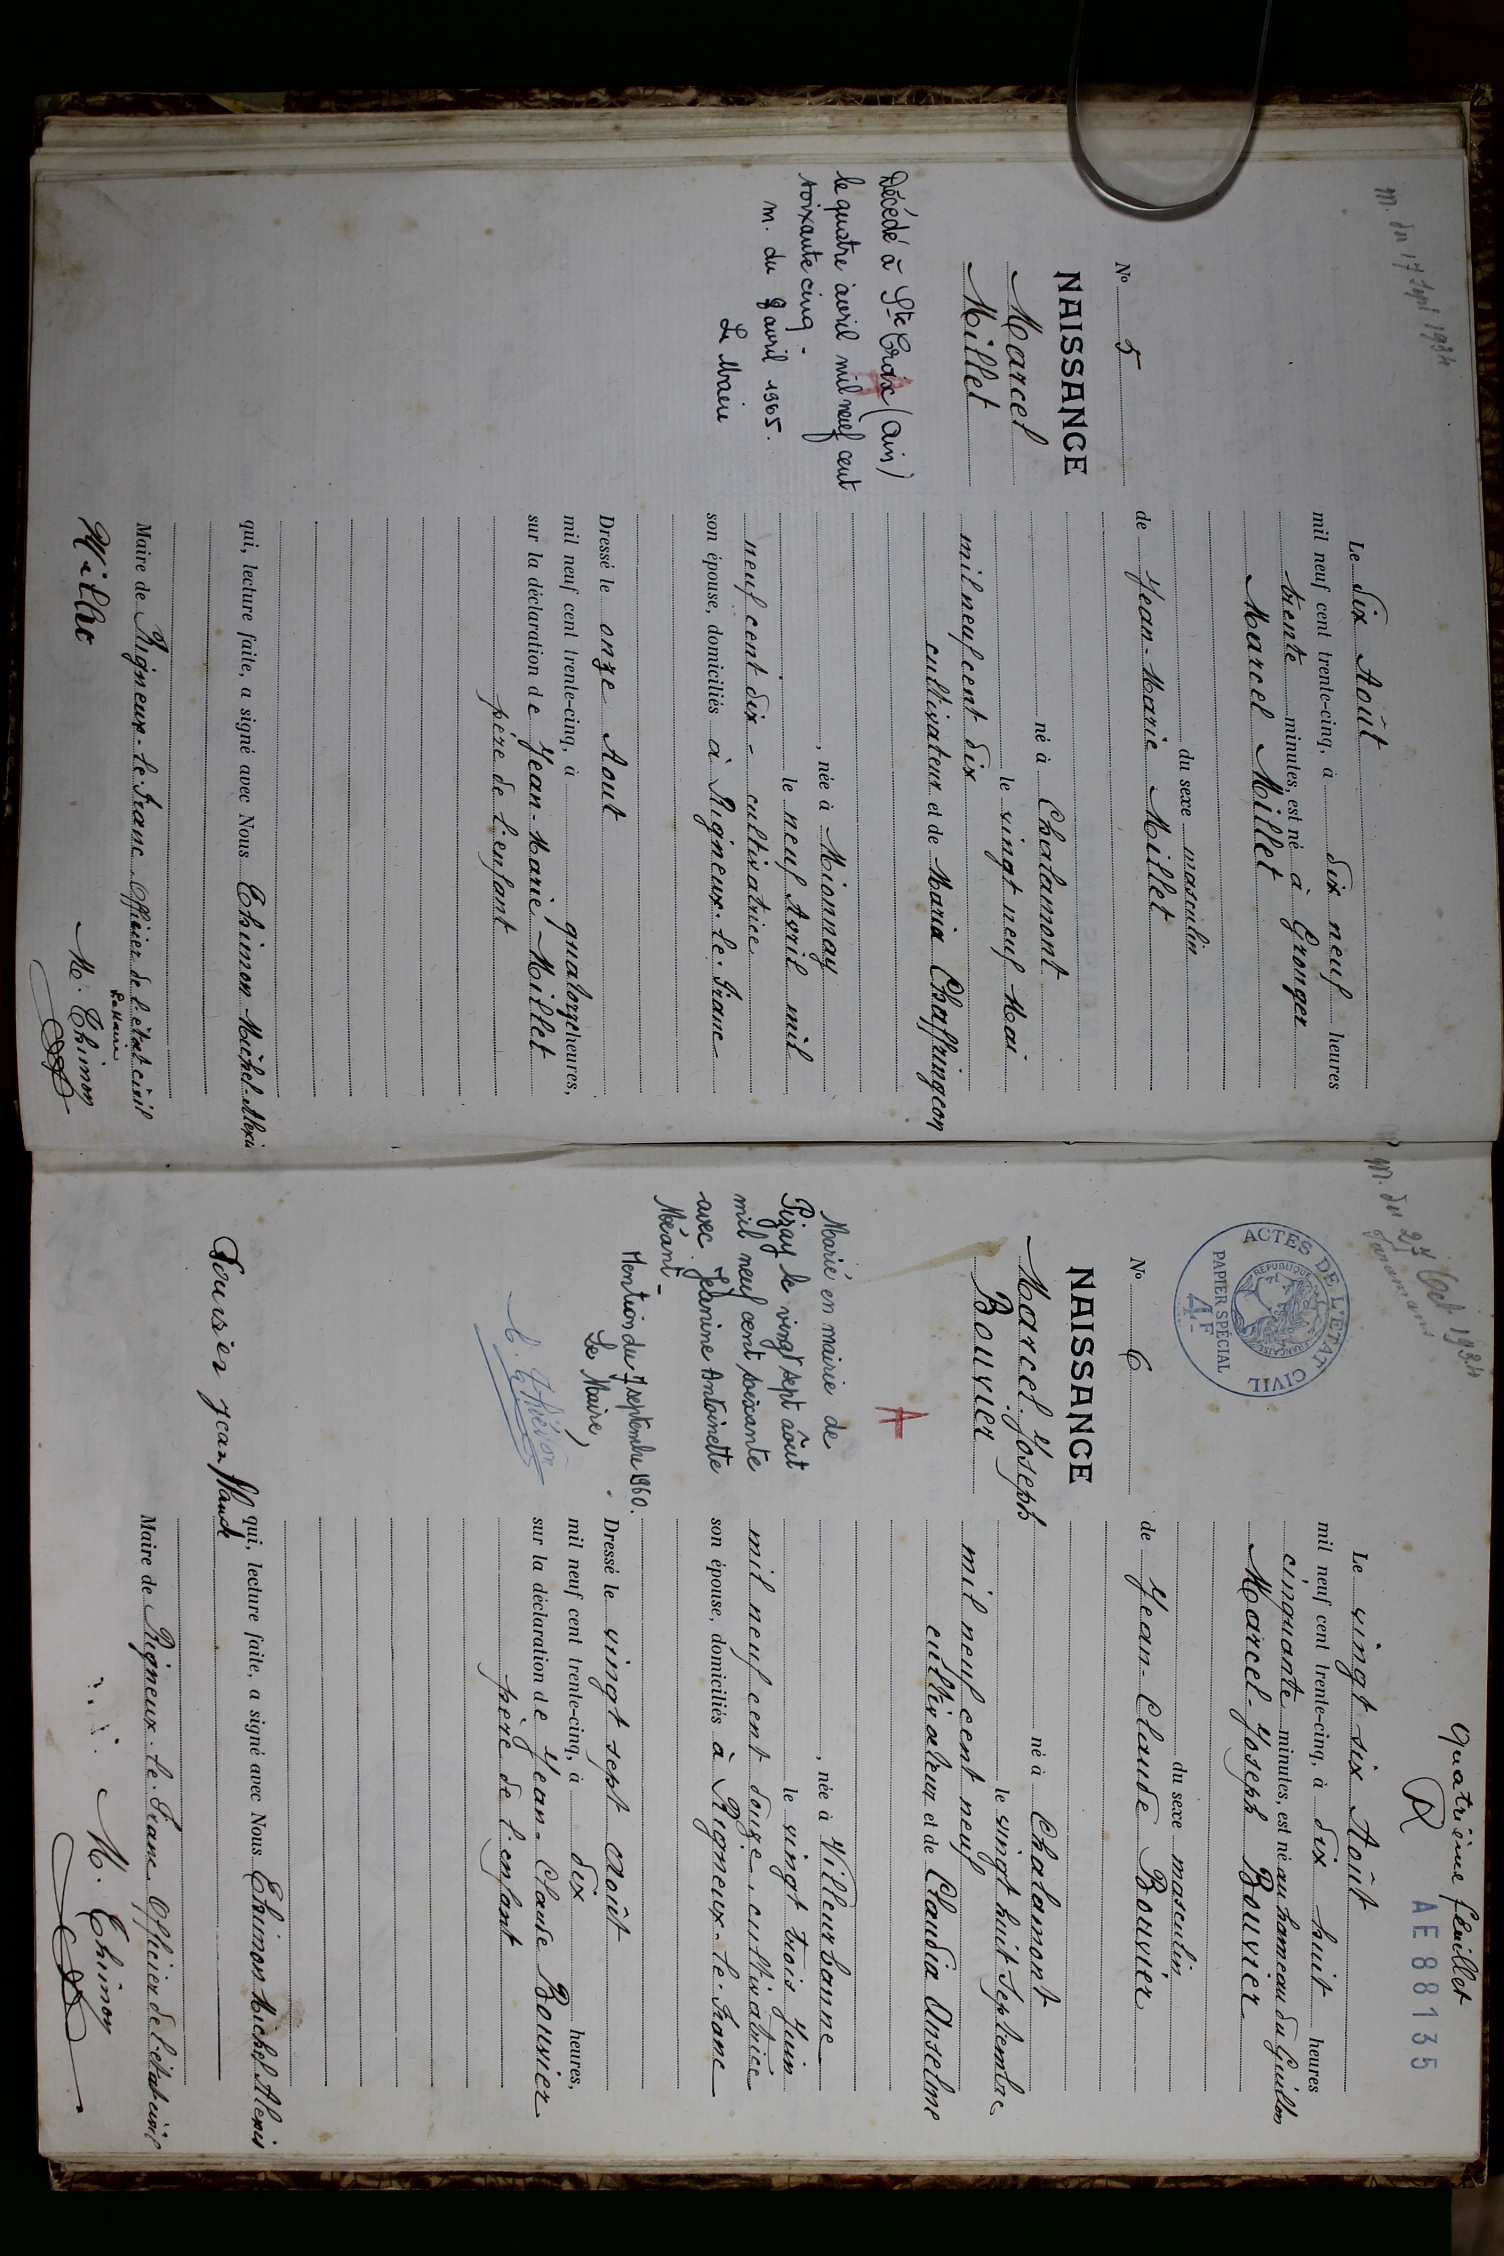 m. du 17 Sept 1934
N° 5
NAISSANCE
Marcel
Millet
Décédé à Ste Croix (Ain)
le quatre avril mil neuf cent
soixante cinq.
m. du 8 avril 1965.
Le Maire
Le dix Août
mil neuf cent trente-cinq, à dix neuf heures
trente minutes, est né à Grouger
Marcel Millet
du sexe masculin
de Jean-Marie Millet
né à Chalamont
le vingt neuf Mai
mil neuf cent dix
cultivateur et de Maria Chaffringeon
, née à Mionnay
le neuf Avril mil
neuf cent dix - cultivatrice
son épouse, domiciliés à Rigneux-le-Franc
Dressé le onze Aout
mil neuf cent trente-cinq, à quatorze heures,
sur la déclaration de Jean-Marie Millet
père de l'enfant
qui, lecture faite, a signé avec Nous Thimon Michel Alexis
Maire de Rigneux-le-Franc Officier de l'état civil
Le Maire
Millet M. Thimon
m. du 27 Oct 1934
Quatrième feuillet
AE88135
ACTES DE L'ÉTAT CIVIL
RÉPUBLIQUE FRANÇAISE
PAPIER SPÉCIAL
4F
N° 6
NAISSANCE
Marcel Joseph
Bouvier
A
Marié en mairie de
Pizay le vingt sept août
mil neuf cent soixante
avec Jeannine Antoinette
Méant -
Mention du 7 septembre 1960.
Le Maire,
Le vingt six Août
mil neuf cent trente-cinq, à dix huit heures
cinquante minutes, est né au hameau du Guillon
Marcel-Joseph Bouvier
du sexe masculin
de Jean-Claude Bouvier
né à Chalamont
le vingt huit Septembre
mil neuf cent neuf
cultivateur et de Claudia Anselme
, née à Villeurbanne
le vingt trois Juin
mil neuf cent douze, cultivatrice
son épouse, domiciliés à Rigneux-le-Franc
Dressé le vingt sept Août
mil neuf cent trente-cinq, à dix heures,
sur la déclaration de Jean-Claude Bouvier
père de l'enfant
qui, lecture faite, a signé avec Nous Thimon Michel Alexis
Bouvier jean Claude
Maire de Rigneux-le-Franc Officier de l'état civil
M. Thimon